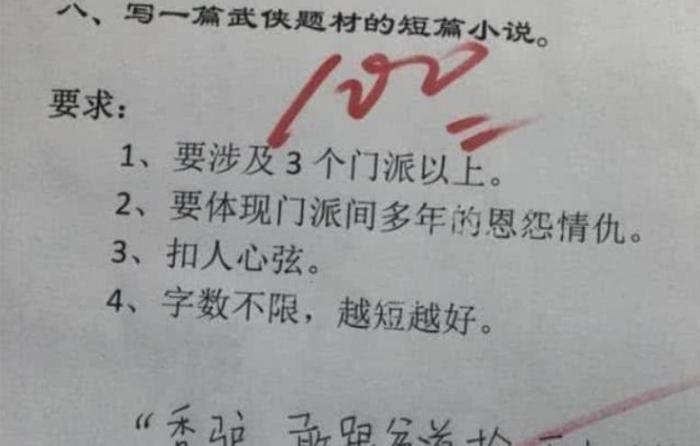 八、写一篇武侠题材的短篇小说。
100
要求：
1、要涉及 3 个门派以上。
2、要体现门派间多年的恩怨情仇。
3、扣人心弦。
4、字数不限，越短越好。
“秃驴 敢跟贫道抢